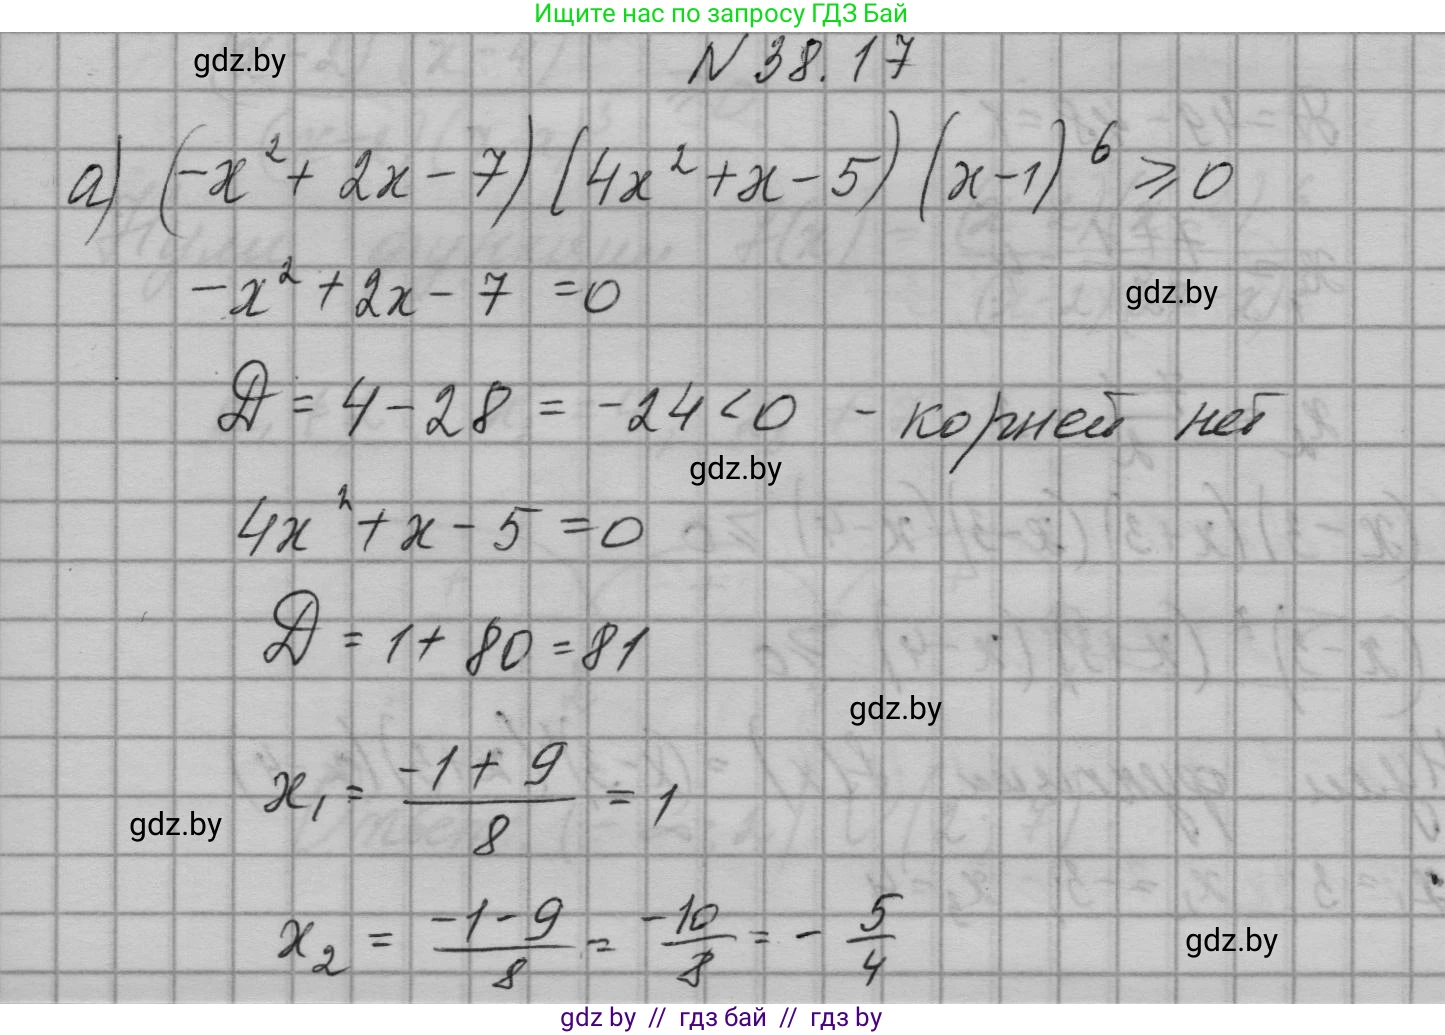 Ищите нас по запросу ГДЗ Бай
gdz.by
N 38.17
а) (-x² + 2x - 7) (4x² + x - 5) (x - 1)⁶ ⩾ 0
-x² + 2x - 7 = 0
gdz.by
D = 4 - 28 = -24 < 0 - корней нет
gdz.by
4x² + x - 5 = 0
D = 1 + 80 = 81
gdz.by
x₁ = (-1 + 9)/8 = 1
gdz.by
x₂ = (-1 - 9)/8 = -10/8 = - 5/4
gdz.by
gdz by // гдз бай // гдз by